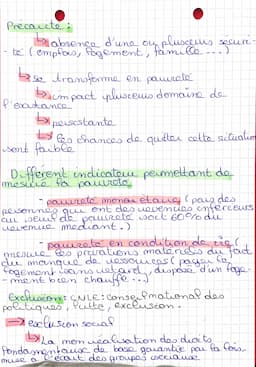 Précarité :
↳ absence d'une ou plusieurs sécuri-
té (emplois, logement, famille...)
↳ se transforme en pauvreté
↳ impact plusieurs domaine de
l'existance
↳ persistante
↳ les chances de quitter cette situation
sont faible
Différent indicateur permettant de
mesuré la pauvreté.
- pauvreté monaietaire (pays des
personnes qui ont des revenues inférieurs
au seuil de pauvreté soit 60% du
revenue médiant.)
- pauvreté en condition de vie (
mesure les privations matériels du fait
du manque de ressources (payer le
logement sans retard, dispose d'un loge-
-ment bien chauffé...)
Exclusion: CNLE: Conseil national des
politiques, lutte, exclusion.
→ exclusion social
↳ La non réalisation des droits
fondamentaux de base garantie par la lois.
mise à l'écart des groupes sociaux.